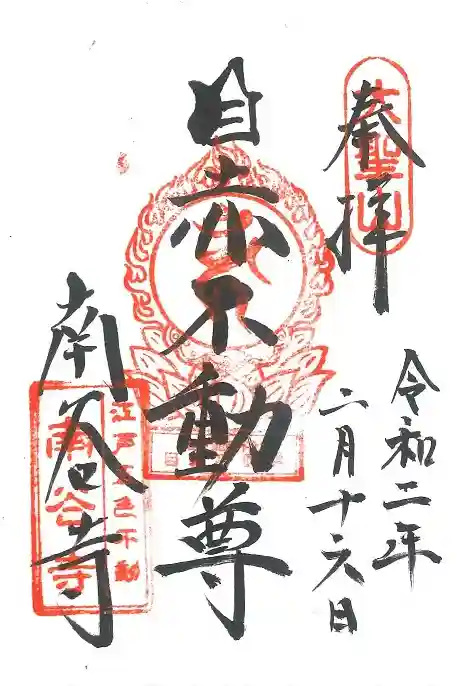 奉拝
大聖山
令和二年
二月十六日
目赤不動尊
南谷寺
江戸五色不動
南谷寺